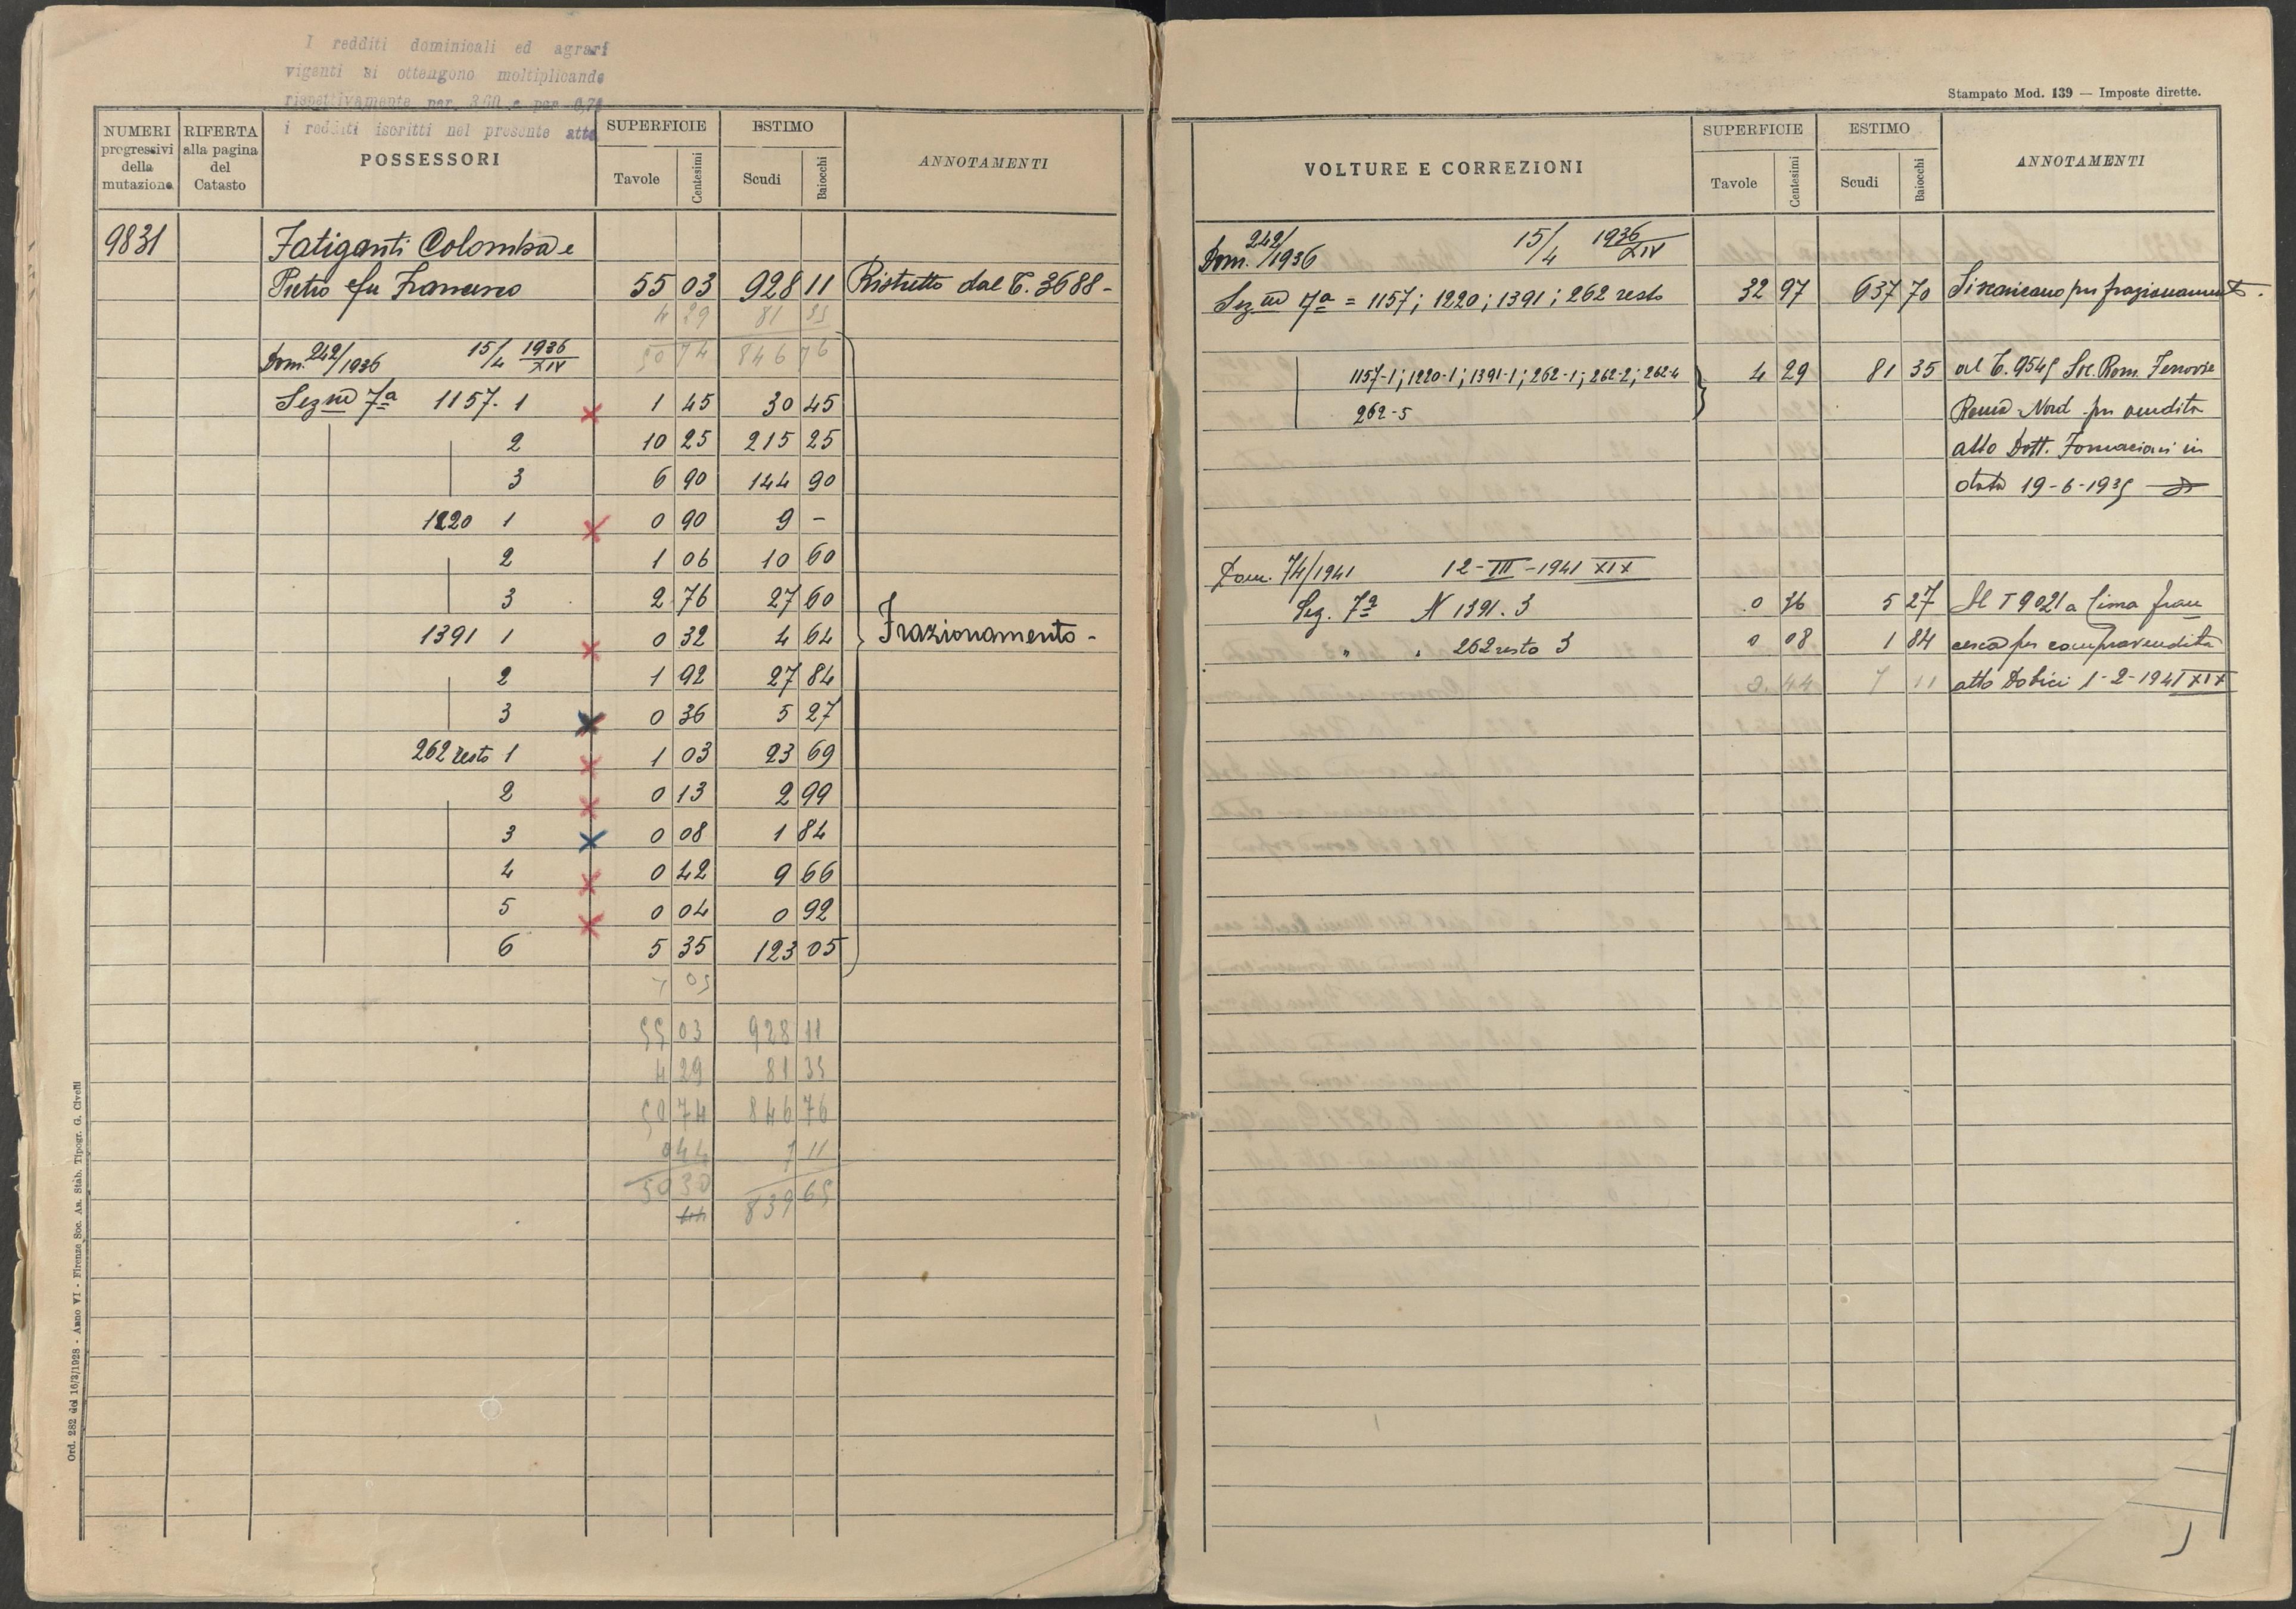 I redditi dominicali ed agrari
vigenti si ottengono moltiplicando
rispettivamente per 3,60 e per 0,74
i redditi iscritti nel presente atto
NUMERI progressivi della mutazione
RIFERTA alla pagina del Catasto
POSSESSORI
SUPERFICIE
Tavole Centesimi
ESTIMO
Scudi Baiocchi
ANNOTAMENTI
9831 Fatiganti Colomba e
Pietro fu Francesco 55 03 928 11 Ristretto dal T. 3688 -
4 29 81 35
50 74 846 76
Dom. 242/1936 15/4 1936 XIV
Sez.ne 7a 1157. 1 1 45 30 45
2 10 25 215 25
3 6 90 144 90
1220 1 0 90 9 -
2 1 06 10 60
3 2 76 27 60
1391 1 0 32 4 64 Frazionamento -
2 1 92 27 84
3 0 36 5 27
262 resto 1 1 03 23 69
2 0 13 2 99
3 0 08 1 84
4 0 42 9 66
5 0 04 0 92
6 5 35 123 05
55 03 928 11
4 29 81 35
50 74 846 76
0 44 7 11
50 30 839 65
44
Ord. 282 del 16/2/1928 - Anno VI - Firenze Soc. An. Stab. Tipogr. G. Civelli
Stampato Mod. 139 — Imposte dirette.
VOLTURE E CORREZIONI
SUPERFICIE
Tavole Centesimi
ESTIMO
Scudi Baiocchi
ANNOTAMENTI
Dom. 242/1936 15/4 1936 XIV
Sez.ne 7a = 1157; 1220; 1391; 262 resto 32 97 637 70 Si scaricano per frazionamento.
1157-1; 1220-1; 1391-1; 262-1; 262-2; 262-4 4 29 81 35 al T. 9545 Soc. Rom. Ferrovie
262-5 Roma-Nord per vendita
atto Dott. Fornaciari in
data 19-6-1935
Dom. 74/1941 12-III-1941 XIX
Sez. 7a N 1391. 3 0 36 5 27 Al T 9021 a Cima Fran
" " 262 resto 3 0 08 1 84 cesca per compravendita
0. 44 7 11 atto Dobici 1-2-1941 XIX